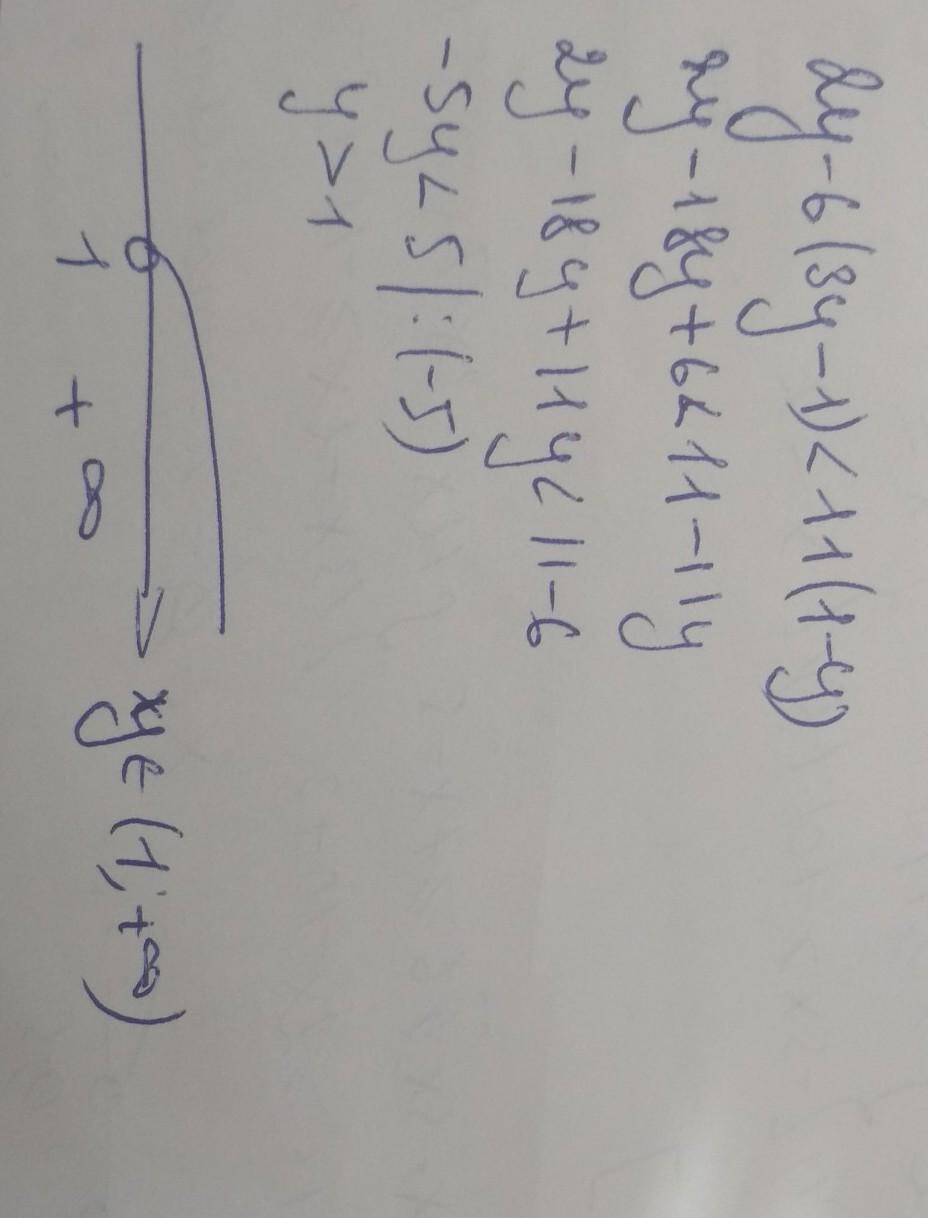 2y-6(3y-1)<11(1-y)
2y-18y+6<11-11y
2y-18y+11y<11-6
-5y<5|:(-5)
y>1
1 +∞ y∈(1;+∞)